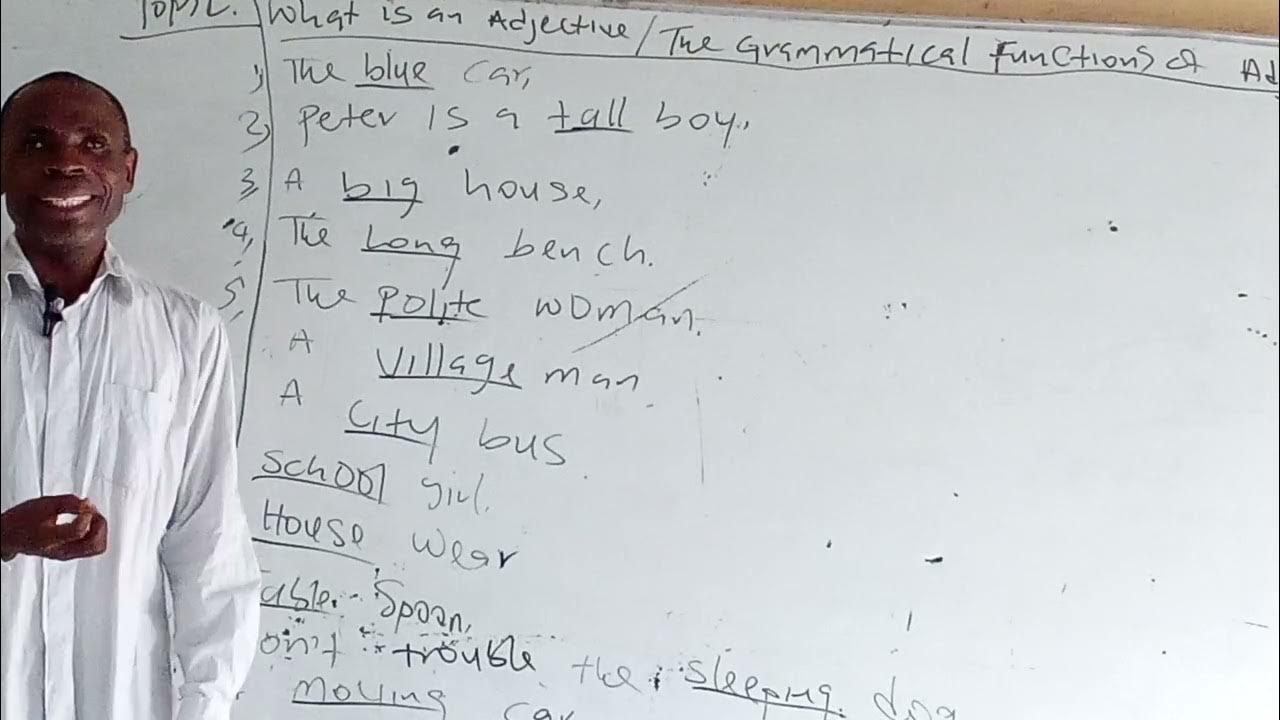 Topic. What is an Adjective/The Grammatical Functions of Ad
1, The blue car,
2, Peter is a tall boy,
3, A big house,
4, The Long bench.
5, The Polite woman.
A Village man.
A City bus.
School girl.
House wear
able. Spoon,
on't trouble the sleeping dog
moving car